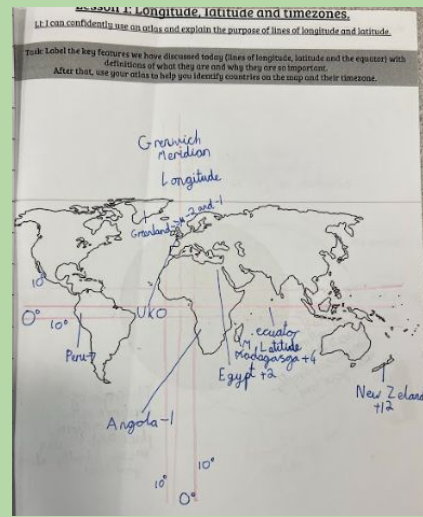 Lesson 1: Longitude, latitude and timezones.
LI: I can confidently use an atlas and explain the purpose of lines of longitude and latitude.
Task: Label the key features we have discussed today (lines of longitude, latitude and the equator) with
definitions of what they are and why they are so important.
After that, use your atlas to help you identify countries on the map and their timezone.
Grenwich
Meridian
Longitude
Greenland -3 and -1
10°
0°
10°
UKO
Peru-7
ecuator
Latitude
Madagasga +4
Egypt +2
New Zeland
+12
Angola-1
10°
10°
0°